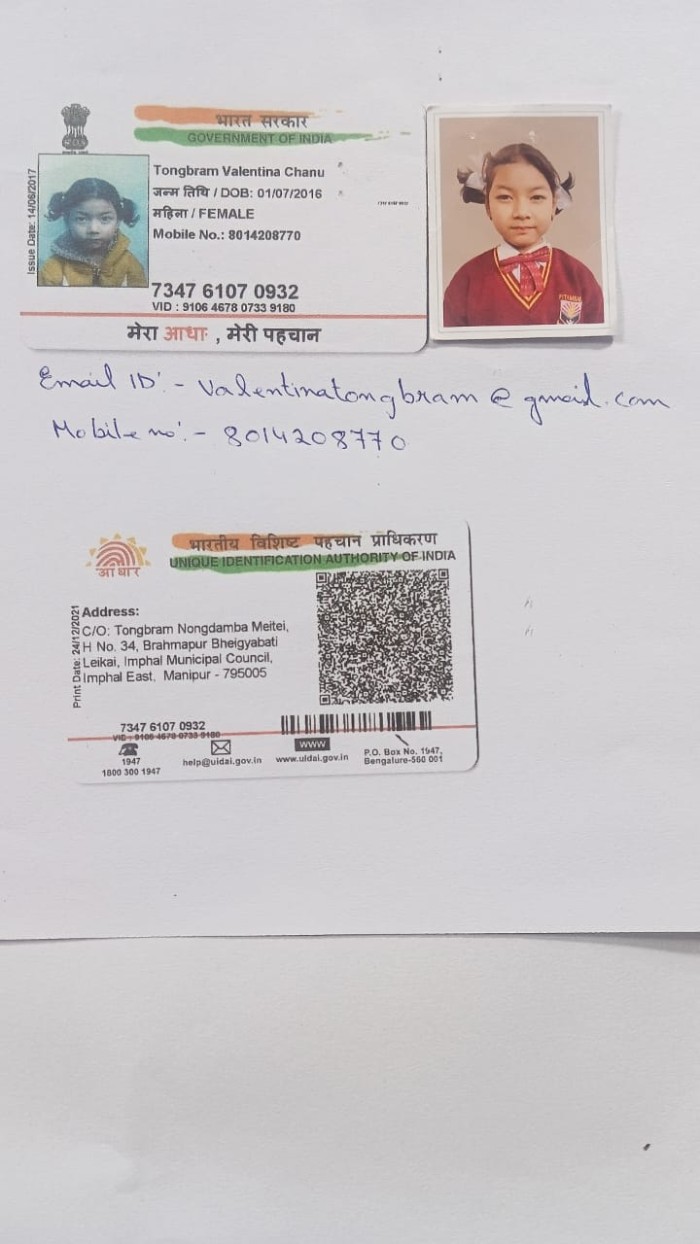 भारत सरकार
GOVERNMENT OF INDIA
Issue Date: 14/06/2017
Tongbram Valentina Chanu
जन्म तिथि / DOB: 01/07/2016
महिला / FEMALE
Mobile No.: 8014208770
7347 6107 0932
VID : 9106 4678 0733 9180
मेरा आधार, मेरी पहचान
Email ID:- valentinatongbram@gmail.com
Mobile no:- 8014208770
भारतीय विशिष्ट पहचान प्राधिकरण
UNIQUE IDENTIFICATION AUTHORITY OF INDIA
आधार
Print Date: 24/12/2021
Address:
C/O: Tongbram Nongdamba Meitei,
H No. 34, Brahmapur Bheigyabati
Leikai, Imphal Municipal Council,
Imphal East, Manipur - 795005
7347 6107 0932
VID : 9106 4678 0733 9180
1947
1800 300 1947
help@uidai.gov.in
WWW
www.uidai.gov.in
P.O. Box No. 1947,
Bengalure-560 001